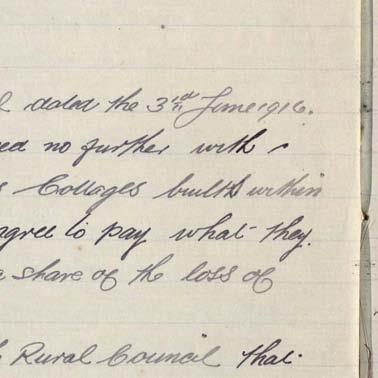 dated the 3rd June 1916.
no further with
Cottages built within
agree to pay what they.
share of the loss of
Rural Council that